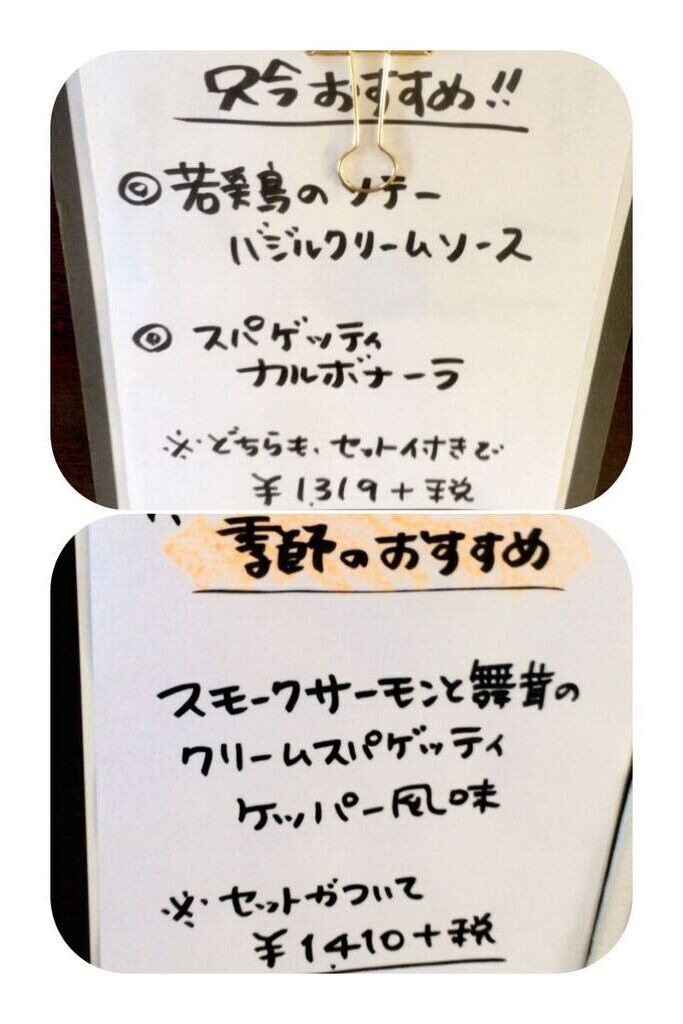 只今おすすめ!!
◎若鶏のソテー
バジルクリームソース
◎スパゲッティ
カルボナーラ
※どちらも、セット付きで
¥1.319+税
季節のおすすめ
スモークサーモンと舞茸の
クリームスパゲッティ
ケッパー風味
※セットがついて
¥1.410+税